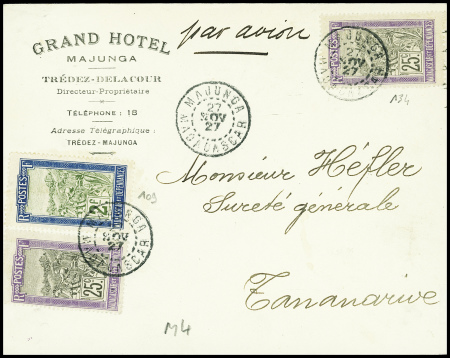 GRAND HOTEL
MAJUNGA
TRÉDEZ-DELACOUR
Directeur-Propriétaire
TÉLÉPHONE : 18
Adresse Télégraphique :
TRÉDEZ-MAJUNGA
par avion
RF POSTES 25c
MAJUNGA
27
NOV
27
MADAGASCAR
Monsieur Héfler
Sureté générale
Tananarive
RF POSTES 2F
RF POSTES 25c
M4